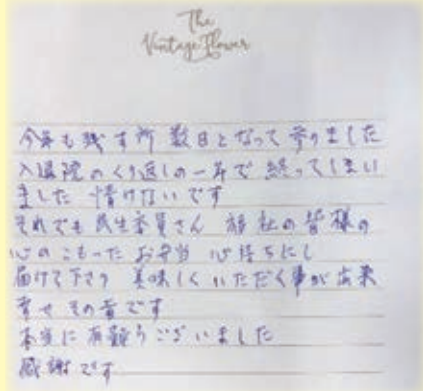 The
Vintage Flower
今年も残す所 数日となって参りました
入退院のくり返しの一年で 終ってしまい
ました 情けないです
それでも民生委員さん 福祉の皆様の
心のこもった お弁当 心待ちにし
届けて下さり 美味しくいただく事が出来
幸せ その者です
本当に有難うございました
感謝です